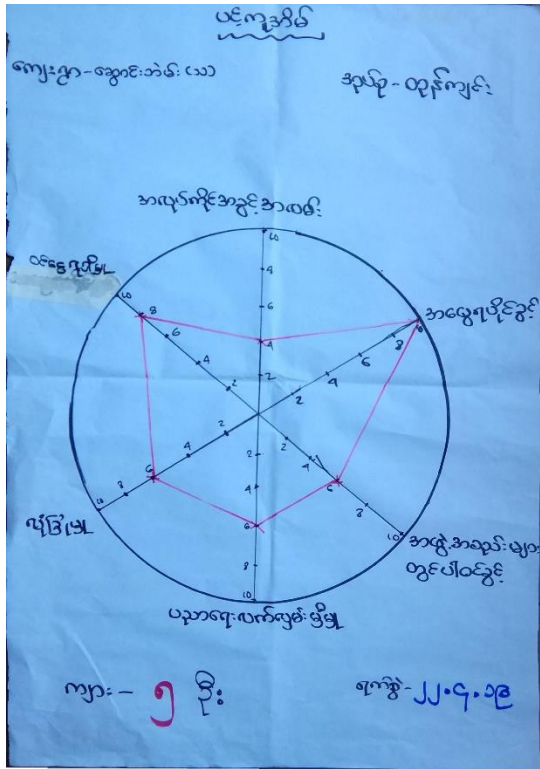 ပင့်ကူအိမ်
ကျေးရွာ - ဆောင်းဘမ်း (သ)
အုပ်စု - ထုန်ကျင်း
အလုပ်ကိုင်အခွင့်အလမ်း
ဝင်ငွေရရှိမှု
အမွေရပိုင်ခွင့်
လုံခြုံမှု
အဖွဲ့အစည်းများ
တွင်ပါဝင်ခွင့်
ပညာရေးလက်လှမ်းမှီမှု
10
6
4
2
2
4
6
8
10
8
6
4
2
2
4
6
8
2
4
6
8
10
2
4
6
8
10
ကျား - ၅ ဦး
ရက်စွဲ - ၂၂.၄.၁၉